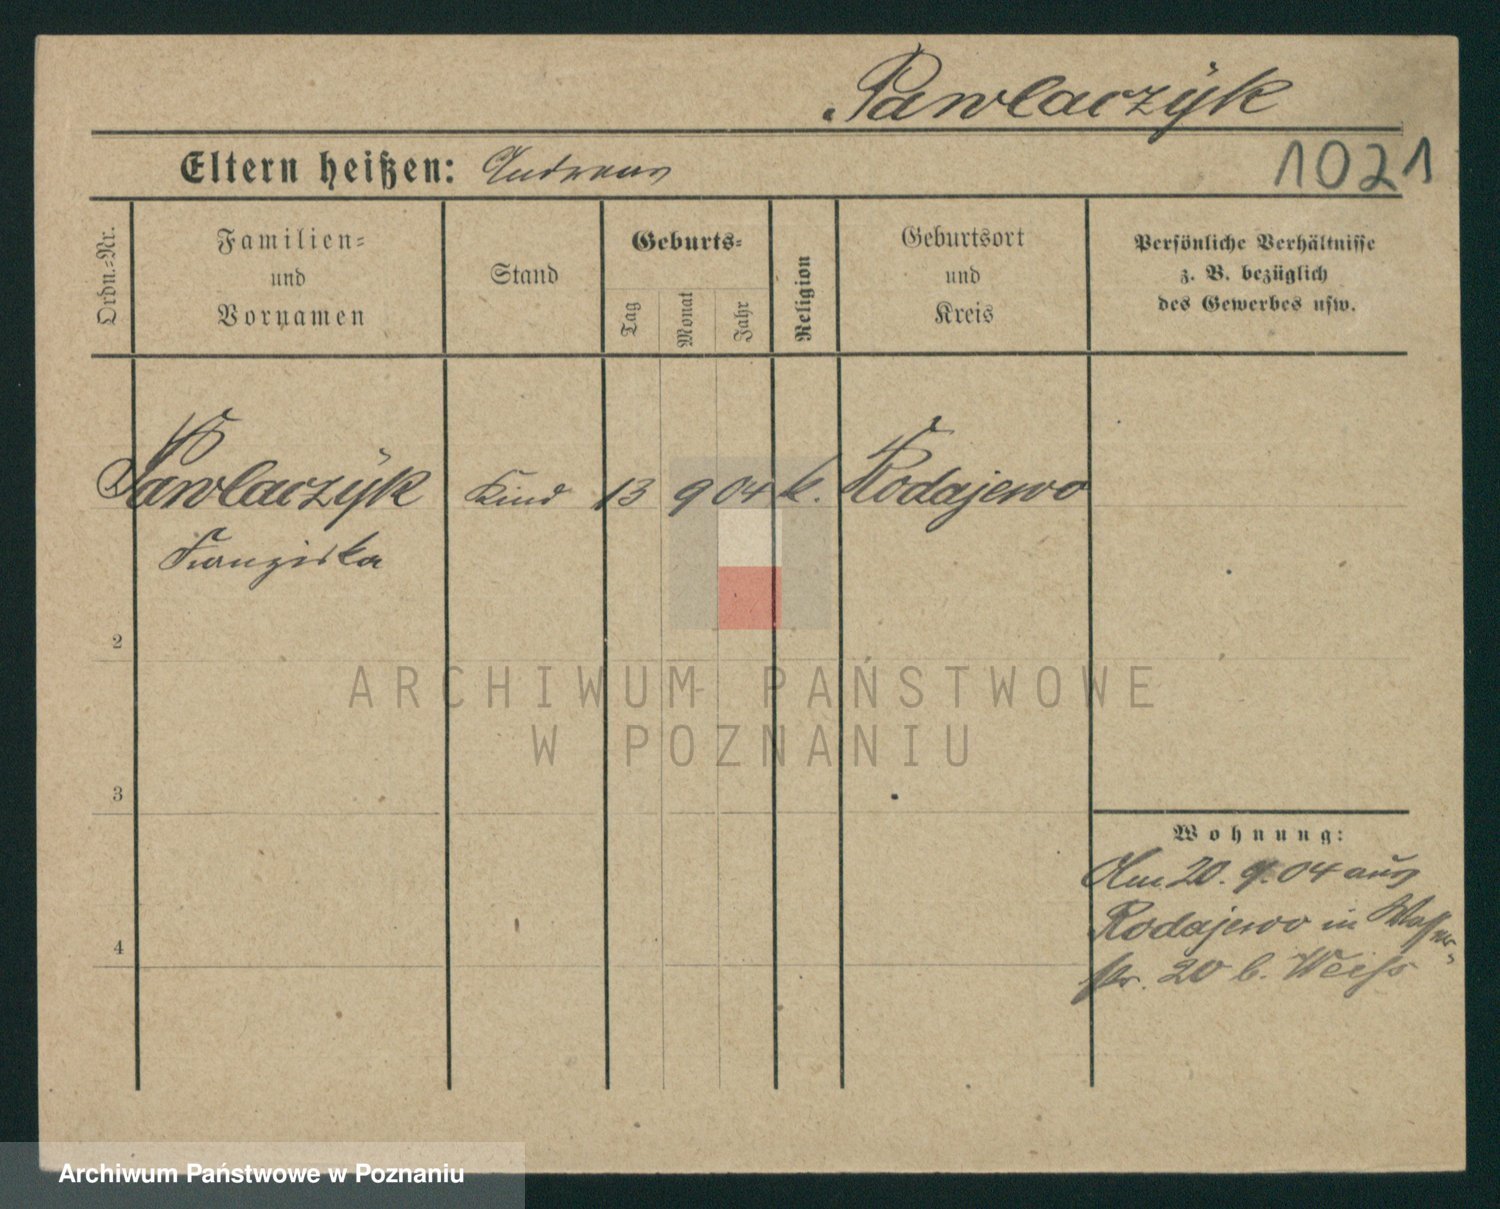 Pawlaczÿk
1021
Eltern heißen: Andreas
Ordn.-Nr.
Familien-
und
Vornamen
Stand
Geburts-
Tag
Monat
Jahr
Religion
Geburtsort
und
Kreis
Persönliche Verhältnisse
z. B. bezüglich
des Gewerbes usw.
Pawlaczÿk Kind 13 9 04 k. Rodajewo
Franziska
2
3
4
Wohnung:
Am 20. 9. 04 aus
Rodajewo in Wasser-
str. 20 b. Weiss
ARCHIWUM PAŃSTWOWE
W POZNANIU
Archiwum Państwowe w Poznaniu